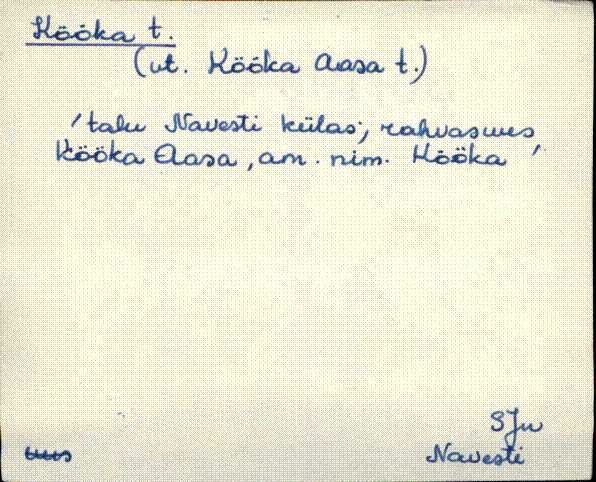 Kööka t.
(vt. Kööka Aasa t.)
'talu Navesti külas; rahvasuus
Kööka Aasa, am. nim. Kööka'
SJn
Navesti